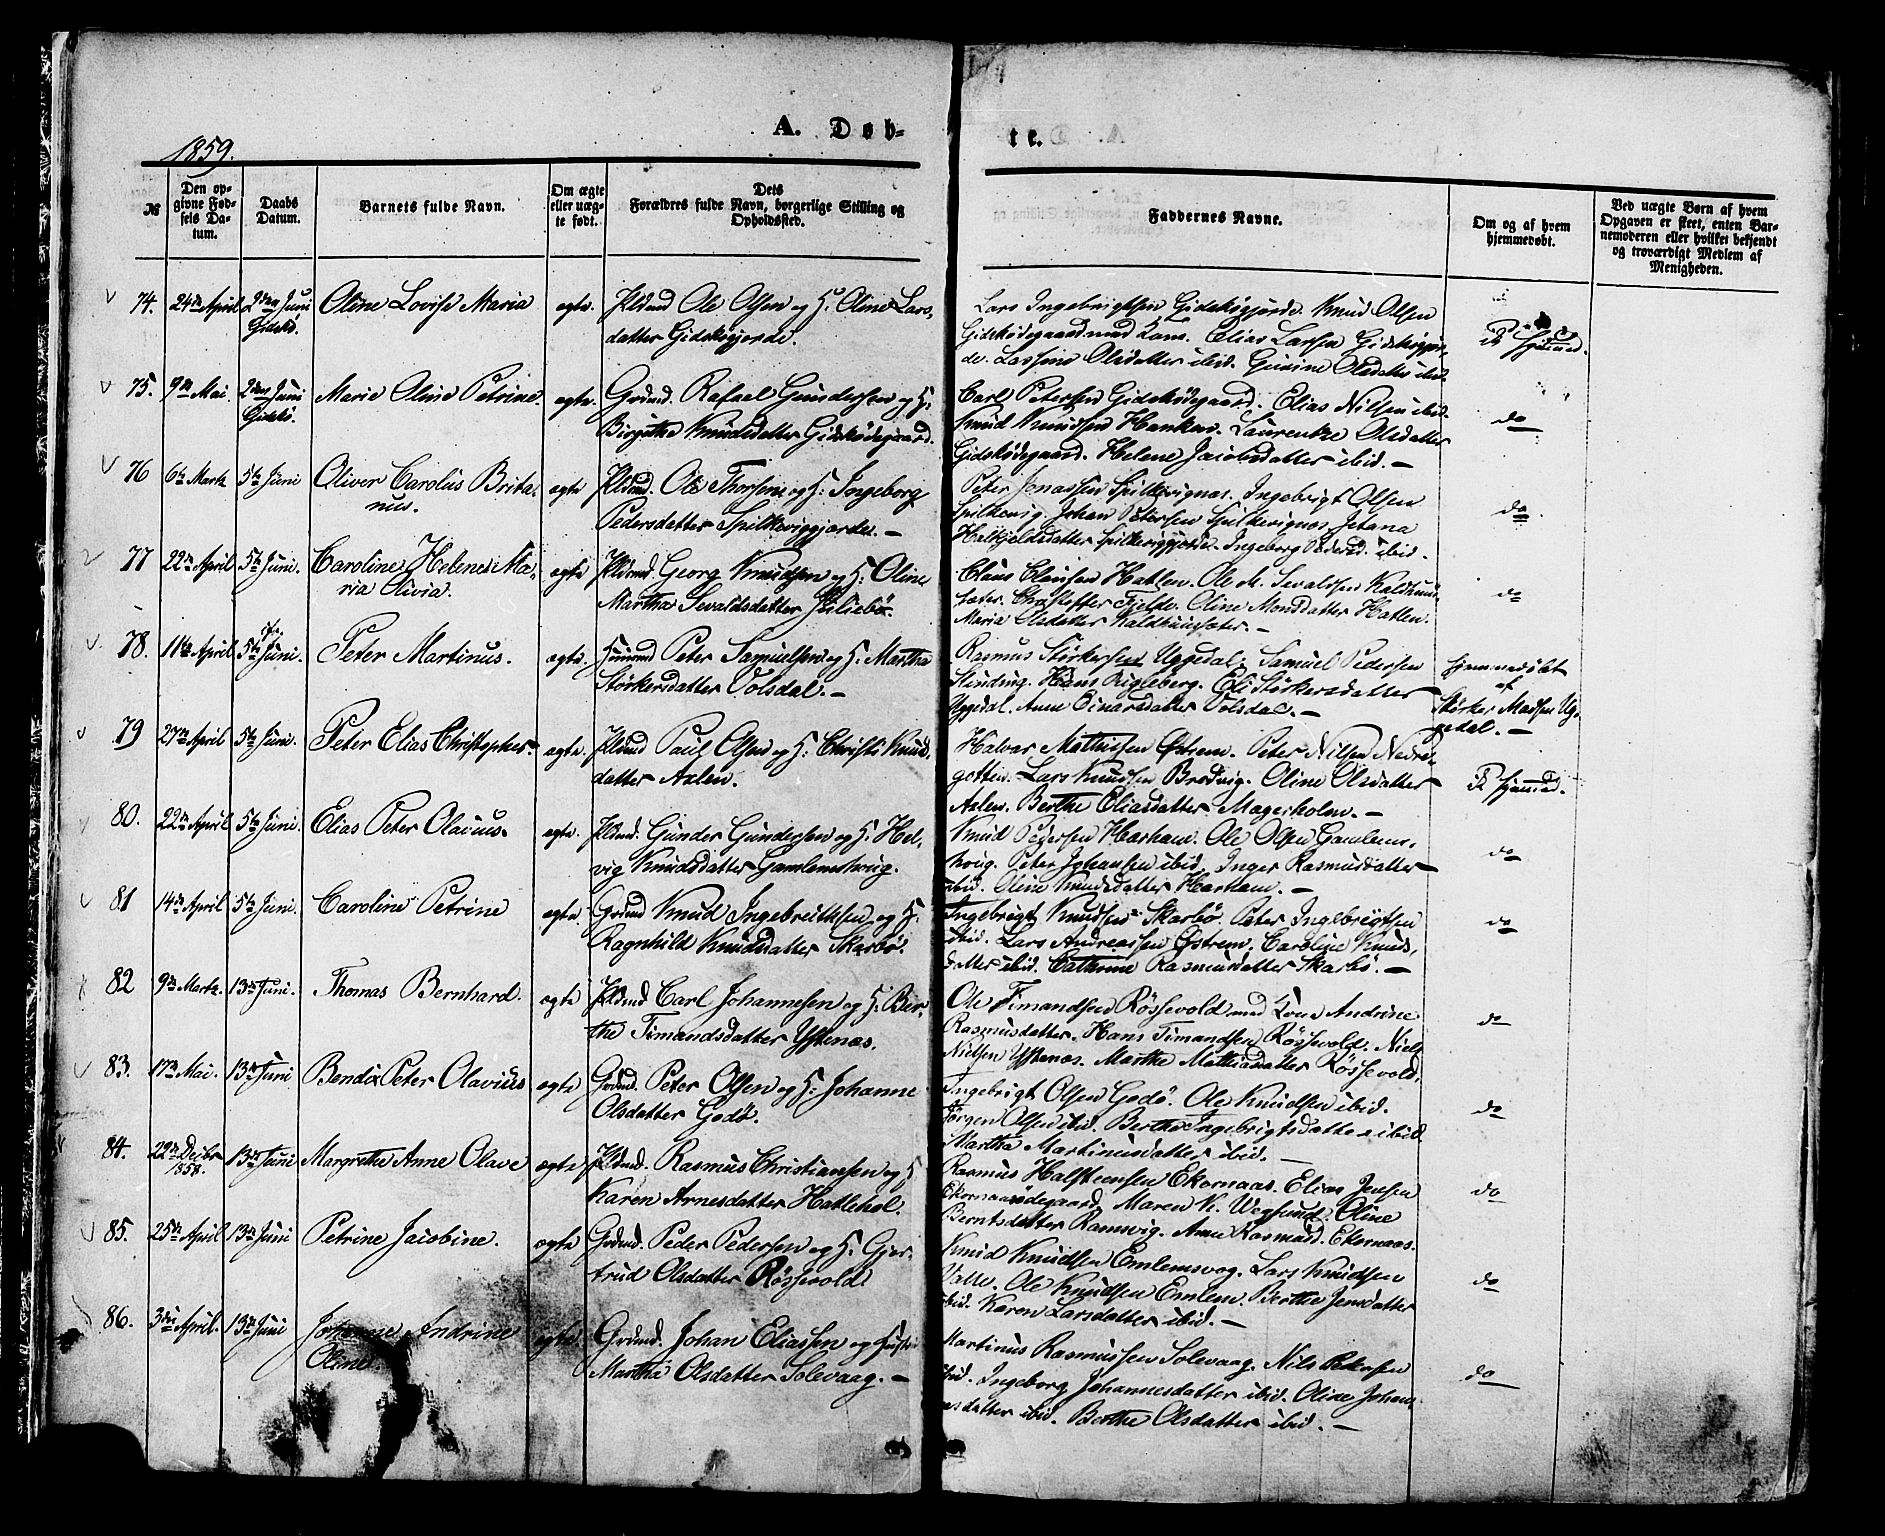 A. Døb-
te.
1859.
№
Den op-
givne Fød-
sels Da-
tum.
Daabs
Datum.
Barnets fulde Navn.
Om ægte
eller uæg-
te født.
Dets
Forældres fulde Navn, borgerlige Stilling og
Opholdssted.
Faddernes Navne.
Om og af hvem
hjemmedøbt.
Ved uægte Børn af hvem
Opgaven er skeet, enten Bar-
nemoderen eller hvilket bekjendt
og troværdigt Medlem af
Menigheden.
74. 24de April 2den Juni Oline Lovise Maria ægte. Ole Olsen og H. Oline Lars-
Giskö. datter Gidskögjerde.
Lars Ingebrigtsen Gidskögjerde. Knud Olsen
Gidskødegaard med Kone. Elias Larsen Gidskögjer-
de. Olsdatter ibid. Gurine Olsdatter ibid.
75. 9de Mai 2den Juni Marie Oline Petrine. ægte. Grdmd. Rafael Gundersen og H.
Gidskö. Birgithe Knudsdatter Gidskødegaard.
Carl Petersen Gidskødegaard. Elias Nilsen ibid.
Knud Knudsen Hanken. Laurentze Olsdatter
Gidskødegaard. Helene Jacobsdatter ibid. —
do
76 6te Marts 5te Juni Oliver Carolus Brita- ægte Ole Thorsen og H. Ingeborg
nus. Pedersdatter Spilkeviggjerde. —
Peter Jonassen Spilkevignæs. Ingebrigt Olsen
Spilkevig. Johan Petersen Spilkevignæs. Jetana
Halkjeldsdatter Spilkeviggjerde. Ingeborg Pedersd. ibid.
do.
77 22de April 5te Juni. Caroline Helene Ma- ægte Georg Knudsen og H. Oline
ria Olivia. Martha Sevaldsdatter
Claus Clausen Hatlen. Ole M. Sevaldsen Kaldhuus-
sæter. Christoffer Fjelde. Oline Monsdatter Hatlen.
Maria Olsdatter Kaldhuussæter. —
do
78. 11te April 5te Juni. Peter Martinus. ægte. Huusmd Peter Samuelsen og H. Martha
Störkersdatter Volsdal. —
Rasmus Störkersen Uggedal. Samuel Pedersen
Slinding. Hans Aigleberg. Eli Störkersdatter
Uggedal. Anne Einarsdatter Volsdal. —
hjemmedöbt
af
Störker Madsen Ug-
gedal. —
79 27de April 5te Juni. Peter Elias Christopher. ægte. Paul Olsen og H. Christi Knuds-
datter Aslen.
Halvar Mathisen Østrem. Peter Nilsen Nedre-
gotten. Lars Knudsen Bredvig. Oline Olsdatter
Aslen. Berthe Eliasdatter Magerholm. —
80. 22de April 5te Juni. Elias Peter Olavius. ægte. Gunder Gundersen og H. Hel-
vig Knudsdatter Gamlemshvig.
Knud Pedersen Harham. Ole Olsen Gamlems-
hvig. Peter Johansen ibid. Inger Rasmusdatter
ibid. Oline Knudsdatter Harham. —
do
81 14de April 5te Juni. Caroline Petrine ægte Grdmd Knud Ingebrethsen og H.
Ragnhild Knudsdatter Skarbö.
Ingebrigt Knudsen Skarbø. Peter Ingebrigtsen
ibid. Lars Andreassen Østrem. Caroline Knuds-
datter ibid. Cathrine Rasmusdatter Skarbö. —
do
82 9de Marts. 13de Juni. Thomas Bernhard. ægte Carl Johannesen og H. Ber-
the Timandsdatter Ystenæs.
Ole Timandsen Rössevold med Kone Andrine
Rasmusdatter. Hans Timandsen Rössevold. Niels
Nielsen Ystenæs. Marthe Mathiasdatter Rössevold.
do
83. 17de Mai. 13de Juni Bendix Peter Olavius ægte Grdmd. Peter Olsen og H. Johanne
Olsdatter Godö.
Ingebrigt Olsen Godö. Ole Knudsen ibid.
Jörgen Olsen ibid. Berthe Ingebrigtsdatter ibid.
Martha Martinusdatter ibid. —
do
84. 29de Decbr 13de Juni Margrethe Anne Olave ægte Rasmus Christiansen og H
1858. Karen Arnesdatter Hatlehol.
Rasmus Halsteensen Ekornaas. Elias Jensen
Ekornaasödegaard. Maren K. Wegsund. Oline
Berntsdatter Ramsvig. Anne Rasmusd. Ekornaas.
do
85. 25de April 13de Juni Petrine Jacobine. ægte Grdmd. Peder Pedersen og H. Gjer-
trud Olsdatter Rössevold
Knud Knudsen Emlemsvog. Lars Knudsen
Valle. Ole Knudsen Emlem. Berthe Jensdatter
ibid. Karen Larsdatter ibid. —
do
86. 3die April. 13de Juni Johanne Andrine ægte. Grdmd. Johan Eliassen og Hustru
Oline. Martha Olsdatter Solevaag. —
Martinus Rasmussen Solevaag. Nils Petersen
ibid. Ingeborg Johannesdatter ibid. Oline Johan-
esdatter ibid. Berthe Olsdatter ibid. —
do